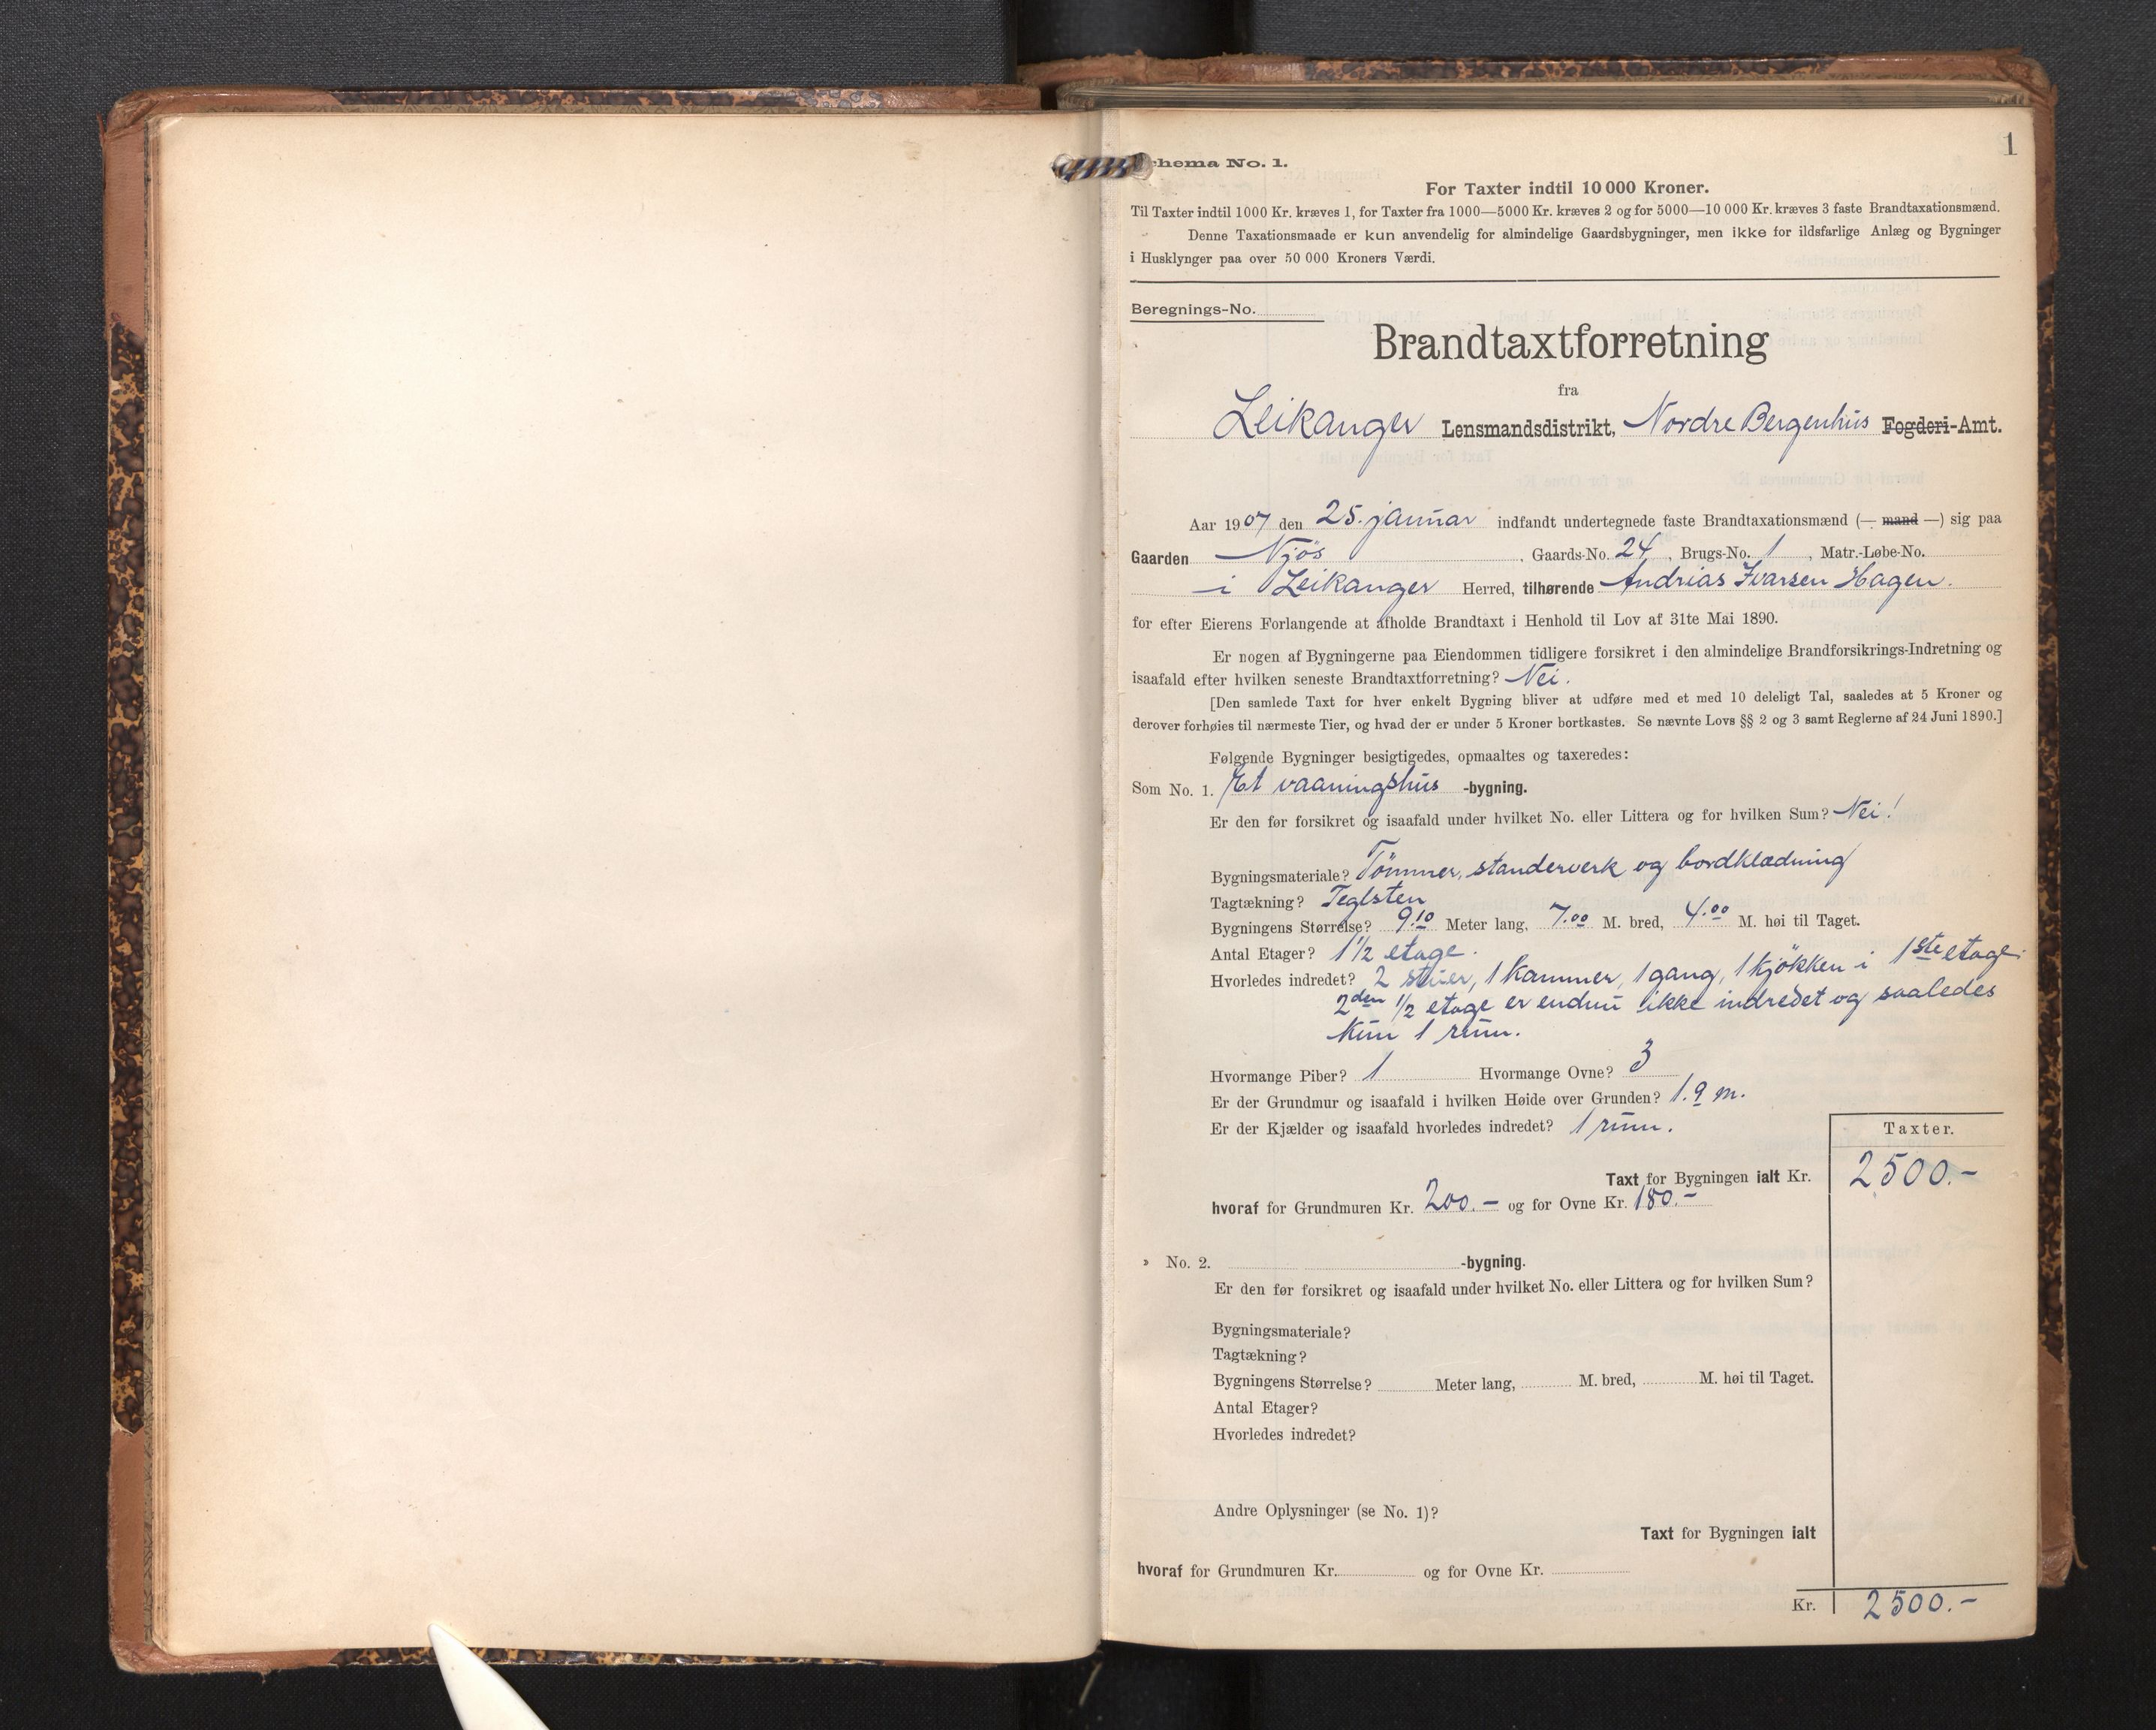 1
Schema No. 1.
For Taxter indtil 10 000 Kroner.
Til Taxter indtil 1000 Kr. kræves 1, for Taxter fra 1000—5000 Kr. kræves 2 og for 5000—10 000 Kr. kræves 3 faste Brandtaxationsmænd.
Denne Taxationsmaade er kun anvendelig for almindelige Gaardsbygninger, men ikke for ildsfarlige Anlæg og Bygninger
i Husklynger paa over 50 000 Kroners Værdi.
Beregnings-No.
Brandtaxtforretning
fra
Leikanger Lensmandsdistrikt, Nordre Bergenhus Fogderi-Amt.
Aar 1907 den 25. januar indfandt undertegnede faste Brandtaxationsmænd (— mand —) sig paa
Gaarden Njøs, Gaards-No. 24, Brugs-No. 1, Matr.-Løbe-No.
i Leikanger Herred, tilhørende Andrias Ivarsen Hagen.
for efter Eierens Forlangende at afholde Brandtaxt i Henhold til Lov af 31te Mai 1890.
Er nogen af Bygningerne paa Eiendommen tidligere forsikret i den almindelige Brandforsikrings-Indretning og
isaafald efter hvilken seneste Brandtaxtforretning? Nei.
[Den samlede Taxt for hver enkelt Bygning bliver at udføre med et med 10 deleligt Tal, saaledes at 5 Kroner og
derover forhøies til nærmeste Tier, og hvad der er under 5 Kroner bortkastes. Se nævnte Lovs §§ 2 og 3 samt Reglerne af 24 Juni 1890.]
Følgende Bygninger besigtigedes, opmaaltes og taxeredes:
Som No. 1. Et vaaningshus -bygning.
Er den før forsikret og isaafald under hvilket No. eller Littera og for hvilken Sum? Nei!
Bygningsmateriale? Tömmer, standerverk og bordklædning
Tagtækning? Teglsten
Bygningens Størrelse? 9.10 Meter lang, 7.00 M. bred, 4.00 M. høi til Taget.
Antal Etager? 1 1/2 etage.
Hvorledes indredet? 2 stuer, 1 kammer, 1 gang, 1 kjökken i 1ste etage.
2den 1/2 etage er endnu ikke indredet og saaledes
kun 1 rum.
Hvormange Piber? 1 Hvormange Ovne? 3
Er der Grundmur og isaafald i hvilken Høide over Grunden? 1.9 m.
Er der Kjælder og isaafald hvorledes indredet? 1 rum.
Taxter.
Taxt for Bygningen ialt Kr. 2500.-
hvoraf for Grundmuren Kr. 200.- og for Ovne Kr. 180.-
» No. 2. -bygning.
Er den før forsikret og isaafald under hvilket No. eller Littera og for hvilken Sum?
Bygningsmateriale?
Tagtækning?
Bygningens Størrelse? Meter lang, M. bred, M. høi til Taget.
Antal Etager?
Hvorledes indredet?
Andre Oplysninger (se No. 1)?
Taxt for Bygningen ialt
hvoraf for Grundmuren Kr. og for Ovne Kr.
Kr. 2500.-